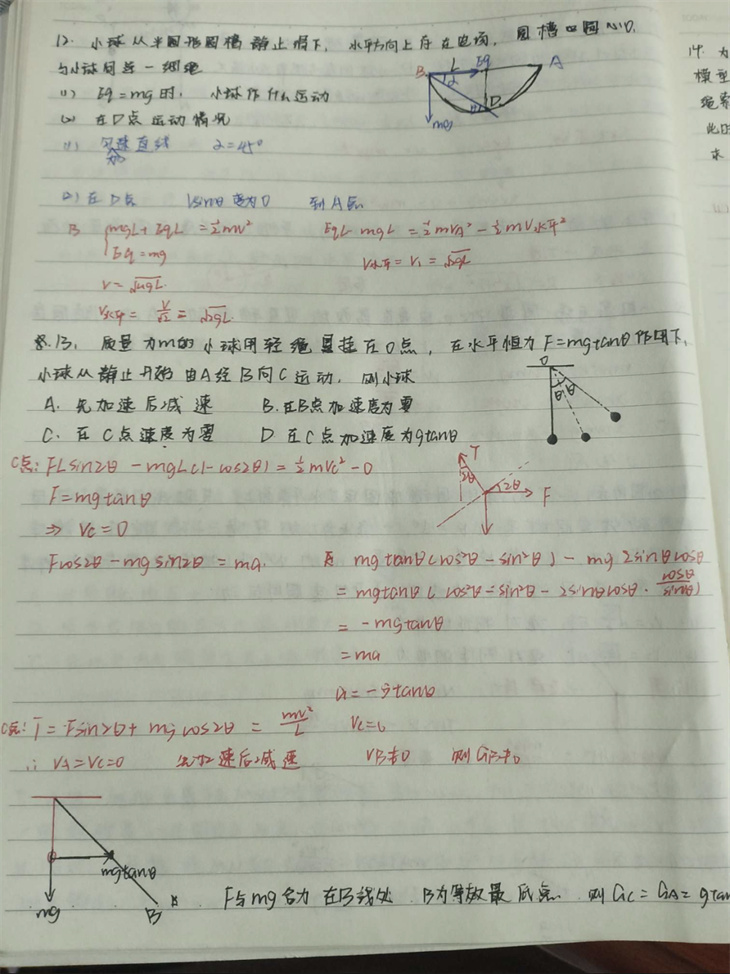 12. 小球从半圆形圆槽静止滑下, 水平方向上存在电场, 圆槽
与小球同连一细绳
B L Eq A
α D
mg
(1) Eq=mg时, 小球作什么运动
(2) 在D点运动情况
(1) 匀加速直线 α=45°
(2) 在D点 到A点
B mgL+EqL=½mv² EqL-mgL=½mVA²-½mV水平²
Eq=mg V水平=V₁=√2gL
V=√4gL
V水平=V/√2=√2gL
13. 质量为m的小球用轻绳悬挂在O点, 在水平恒力F=mgtanθ作用下,
小球从静止开始由A经B向C运动, 则小球
O
θ θ
A. 先加速后减速 B. 在B点加速度为零
C. 在C点速度为零 D 在C点加速度为gtanθ
C点: FLsin2θ-mgL(1-cos2θ)=½mVc²-0
T
2θ 2θ F
F=mgtanθ
⇒ Vc=0
Fcos2θ-mgsin2θ=ma. mgtanθ(cos²θ-sin²θ)-mg2sinθcosθ
=mgtanθ(cos²θ-sin²θ-2sinθcosθ·cosθ/sinθ)
=-mgtanθ
=ma
a=-gtanθ
C点: T=Fsin2θ+mgcos2θ=mv²/L Vc=0
∴ VA=Vc=0 先加速后减速 VB≠0 则aB≠0
mgtanθ
mg B
F与mg合力在B线处 B为等效最低点. 则ac=aA=gtan
14. 为
模型
绳索
此时
求